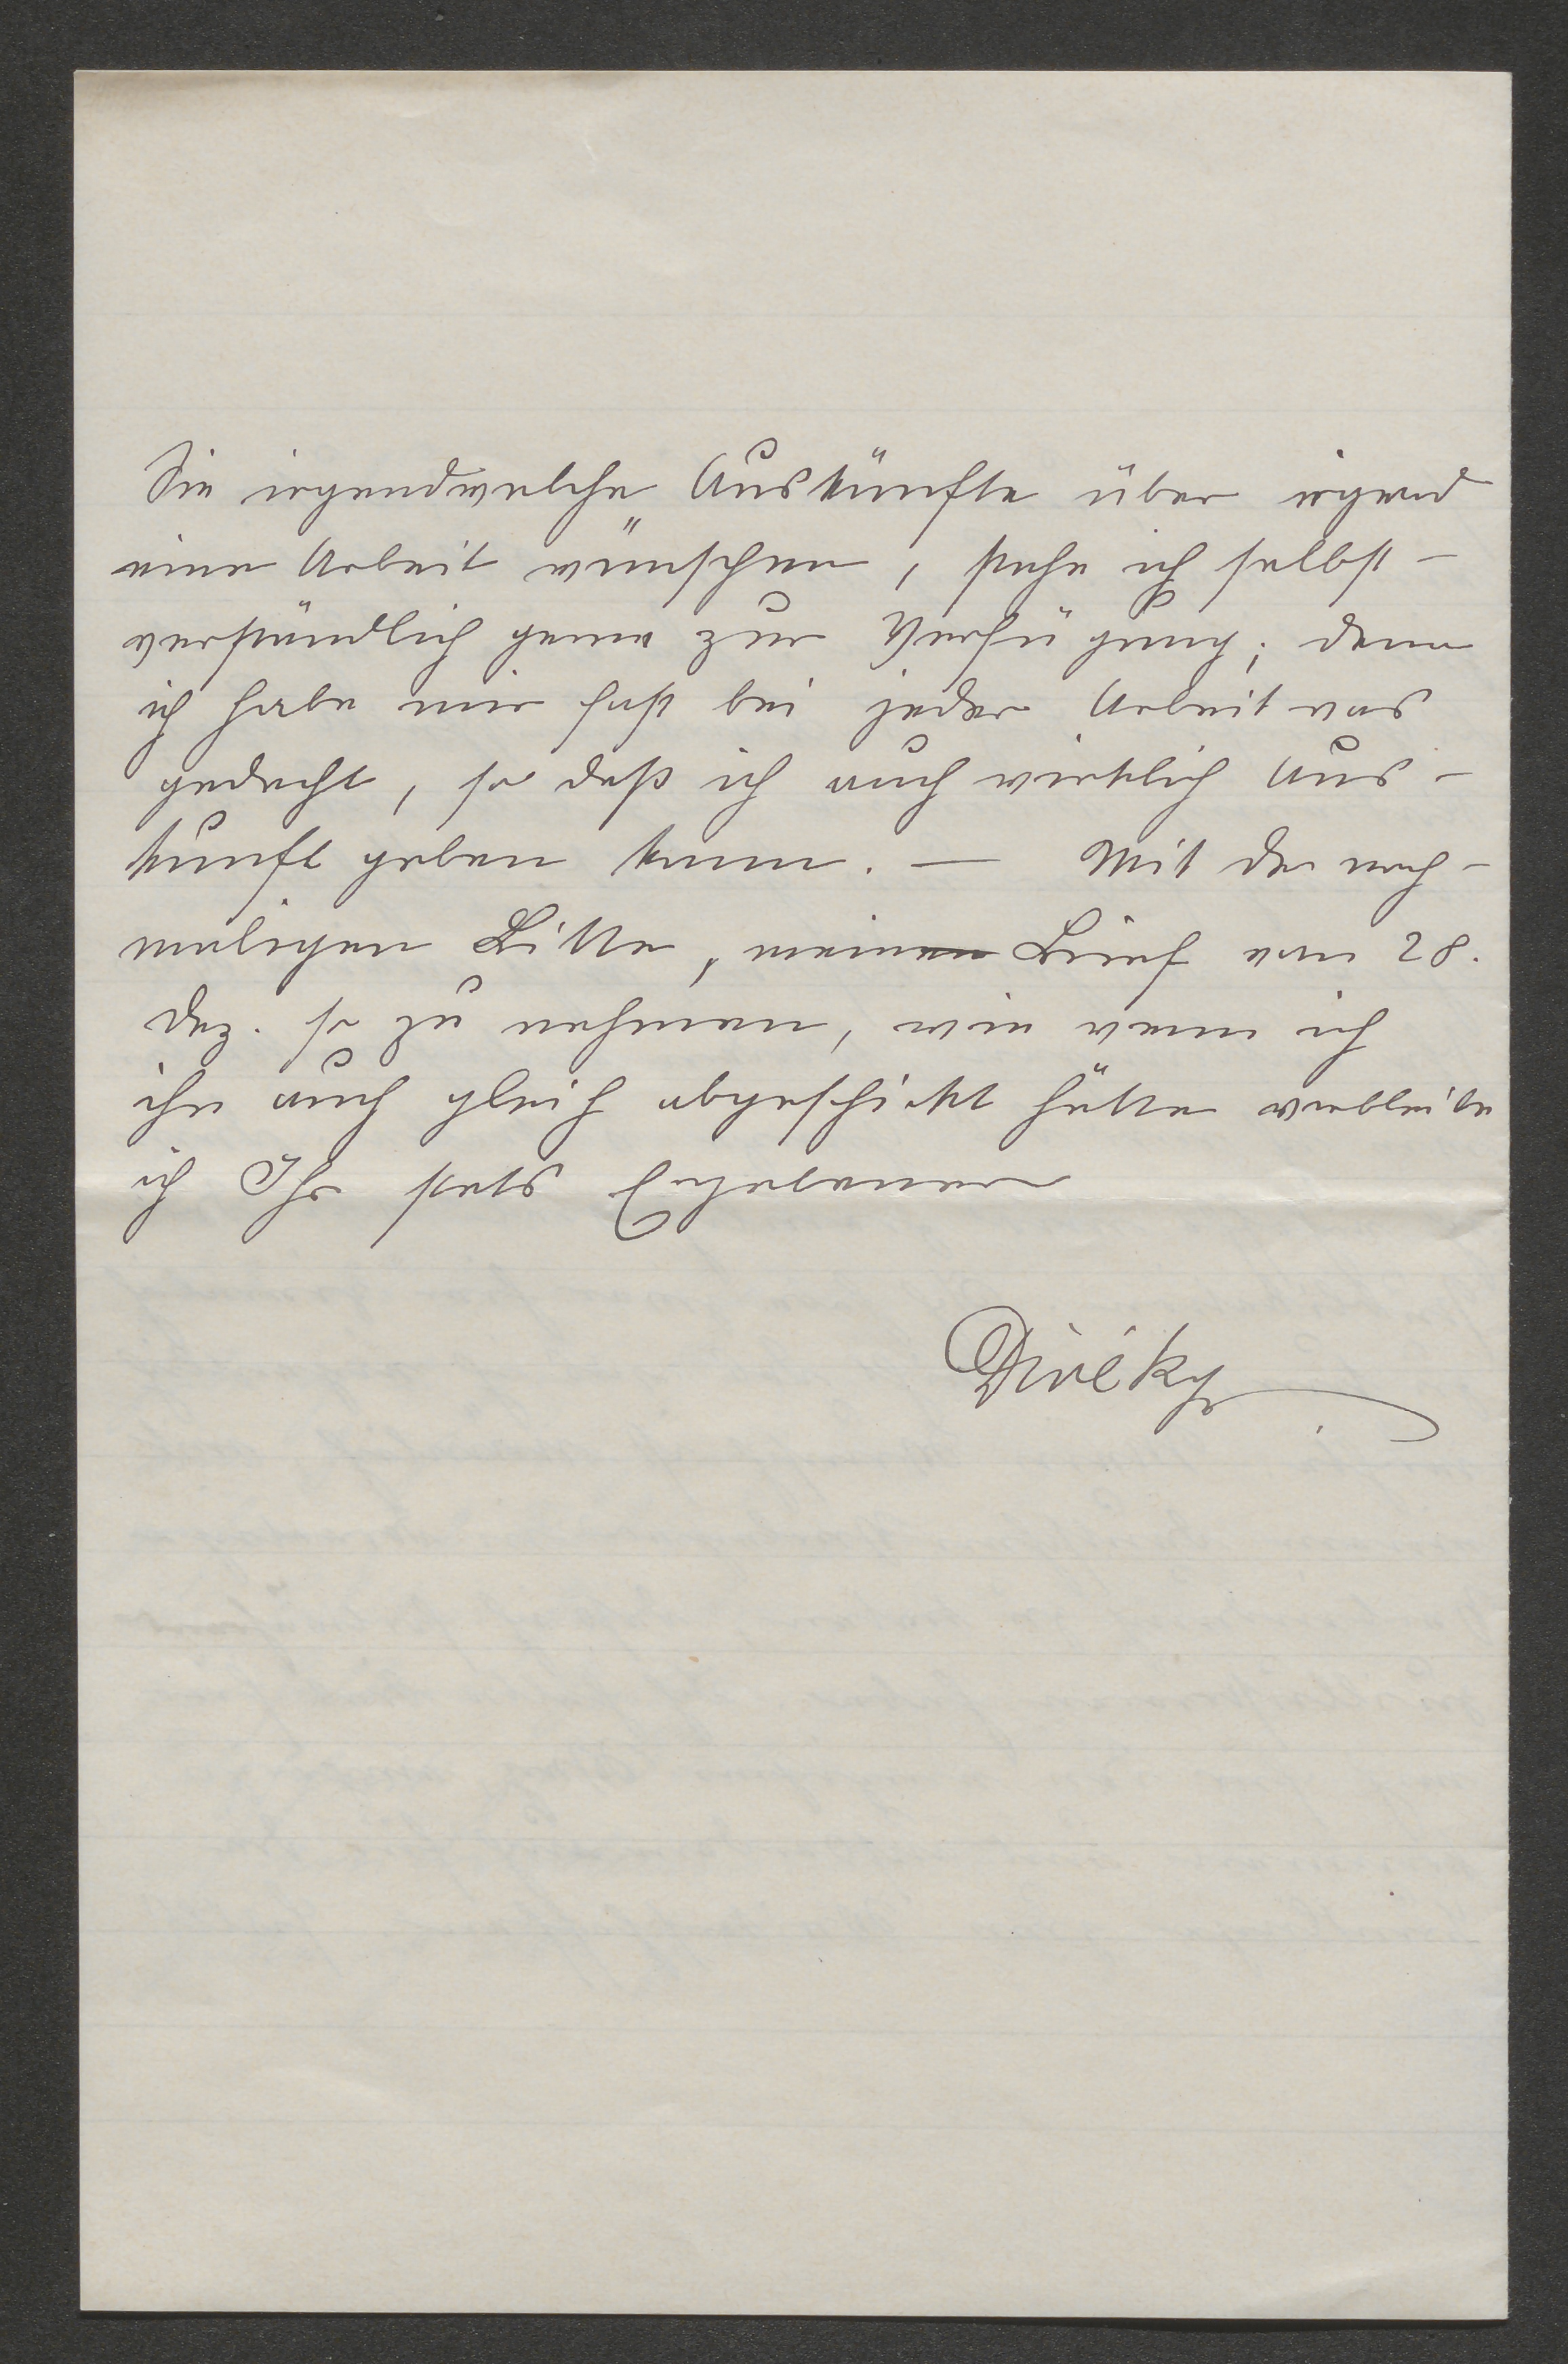 Sie irgendwelche Auskünfte über irgend
eine Arbeit wünschen, stehe ich selbst-
verständlich gerne zur Verfügung; denn
ich habe mir fast bei jeder Arbeit was
gedacht, so daß ich auch wirklich Aus-
kunft geben kann. — Mit der noch-
maligen Bitte, meinen Brief vom 28.
Dez. so zu nehmen, wie wenn ich
ihn auch gleich abgeschickt hätte verbleibe
ich Ihr stets Ergebener
Divéky